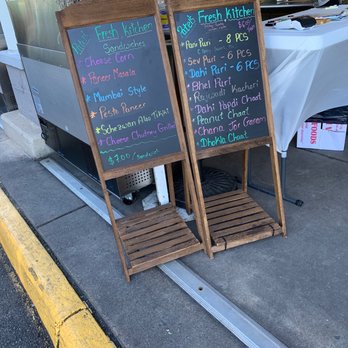 Fresh Kitchen
Sandwiches
Cheese Corn
Paneer Masala
Mumbai Style
Pesto Paneer
Schezwan Aloo Tikki
Cheese Chutney Grilled
$7.00
Fresh Kitchen
Pani Puri - 8 PCS
Sev Puri - 6 PCS
Dahi Puri - 6 PCS
Bhel Puri
Rajwadi Kachori
Dahi Papdi Chaat
Peanut Chaat
Chana Jor Garam
Dhokla Chaat
FOODS